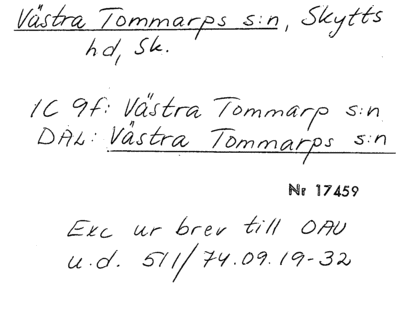 Västra Tommarps s:n, Skytts
hd, Sk.
IC 9f: Västra Tommarp s:n
DAL: Västra Tommarps s:n
Nr 17459
Exc ur brev till OAU
u.d. 511/74.09.19-32